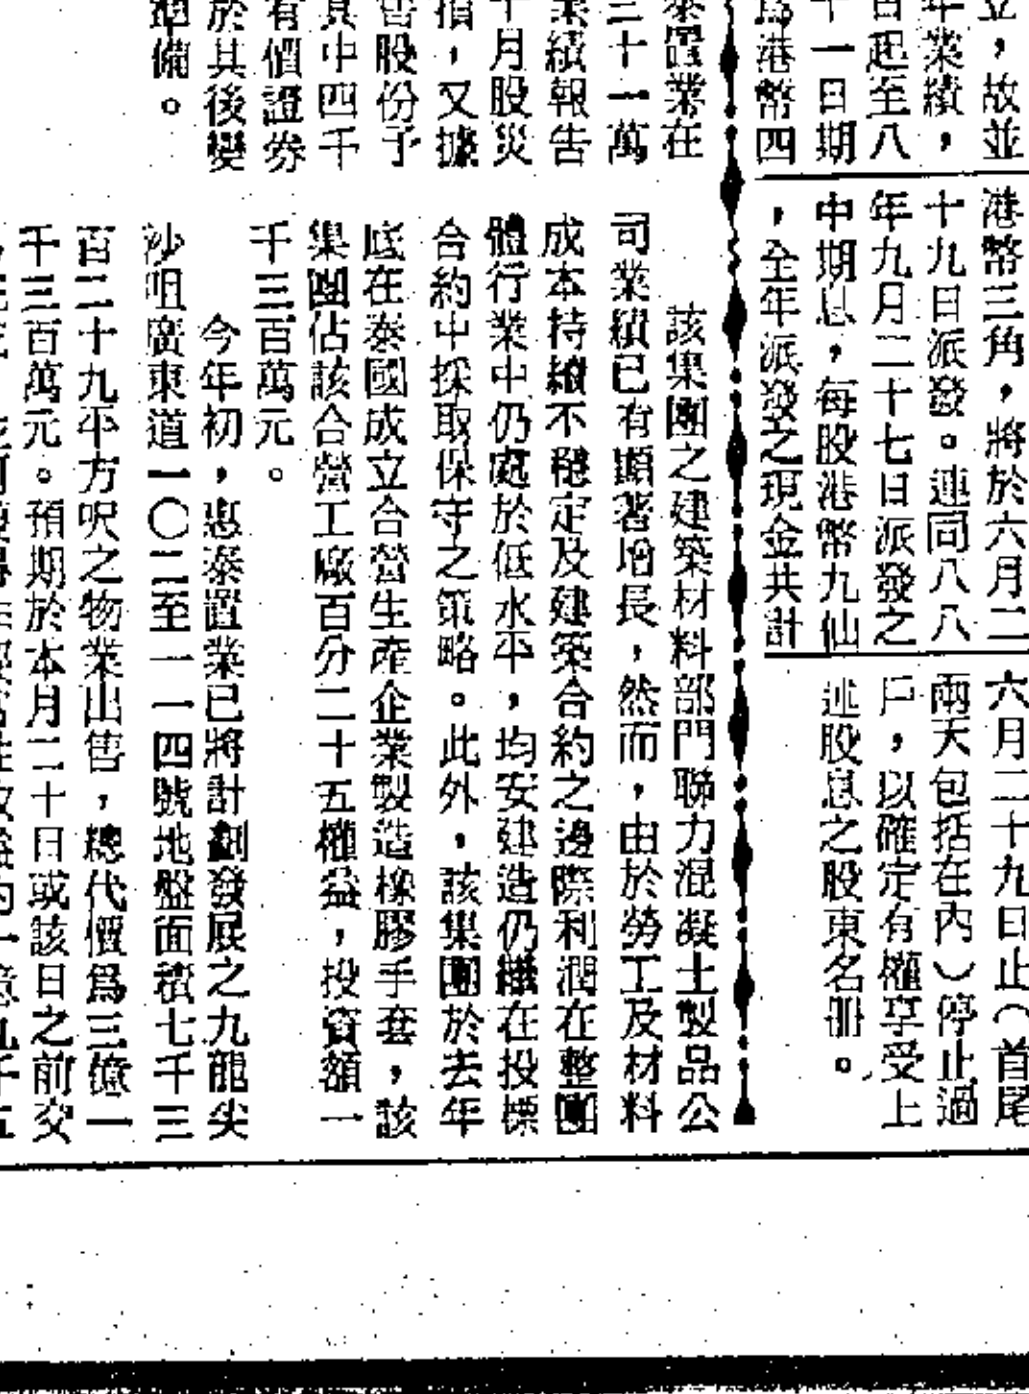 立，故並
年業績，
日起至八
十一日期
爲港幣四
港幣三角，將於六月二
十九日派發。連同八八
年九月二十七日派發之
中期息，每股港幣九仙
，全年派發之現金共計
六月二十九日止（首尾
兩天包括在內）停止過
戶，以確定有權享受上
述股息之股東名册。
泰置業在
三十一萬
業績報告
十月股災
損，又據
售股份予
其中四千
有價證券
於其後變
準備。
該集團之建築材料部門聯力混凝土製品公
司業績已有顯著增長，然而，由於勞工及材料
成本持續不穩定及建築合約之邊際利潤在整團
體行業中仍處於低水平，均安建造仍繼在投標
合約中採取保守之策略。此外，該集團於去年
底在泰國成立合營生產企業製造橡膠手套，該
集團佔該合營工廠百分二十五權益，投資額一
千三百萬元。
今年初，惠泰置業已將計劃發展之九龍尖
沙咀廣東道一〇二至一一四號地盤面積七千三
百二十九平方呎之物業出售，總代價爲三億一
千三百萬元。預期於本月二十日或該日之前交